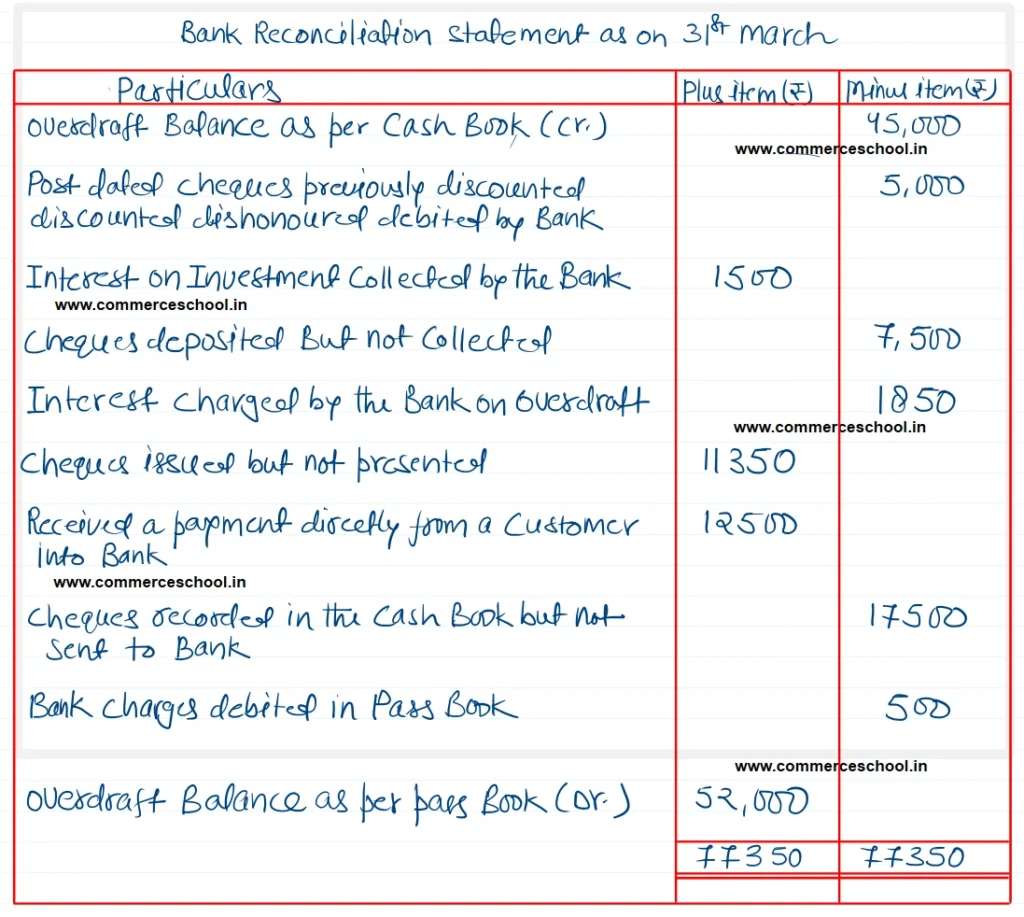 Bank Reconciliation statement as on 31st march
Particulars Plus item (₹) Minus item (₹)
Overdraft Balance as per Cash Book (cr.) 45,000
www.commerceschool.in
Post dated cheques previously discounted 5,000
discounted dishonoured debited by Bank
Interest on Investment Collected by the Bank 1500
www.commerceschool.in
Cheques deposited But not Collected 7,500
Interest charged by the Bank on Overdraft 1850
www.commerceschool.in
Cheques issued but not presented 11350
Received a payment directly from a Customer 12500
into Bank
www.commerceschool.in
Cheques recorded in the Cash Book but not 17500
sent to Bank
Bank charges debited in Pass Book 500
www.commerceschool.in
Overdraft Balance as per pass Book (Dr.) 52,000
77350 77350